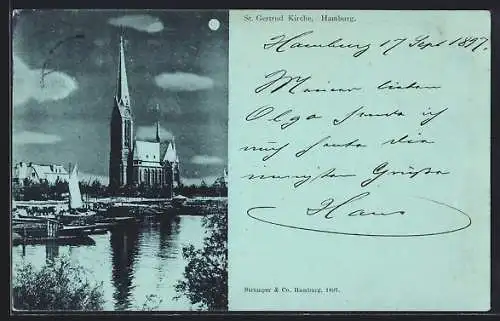 St. Gertrud Kirche, Hamburg.
Hamburg 17 Sept 1897.
Meiner lieben
Olga sende ich
auch heute die
innigsten Grüße
Hans
& Co. Hamburg, 1897.